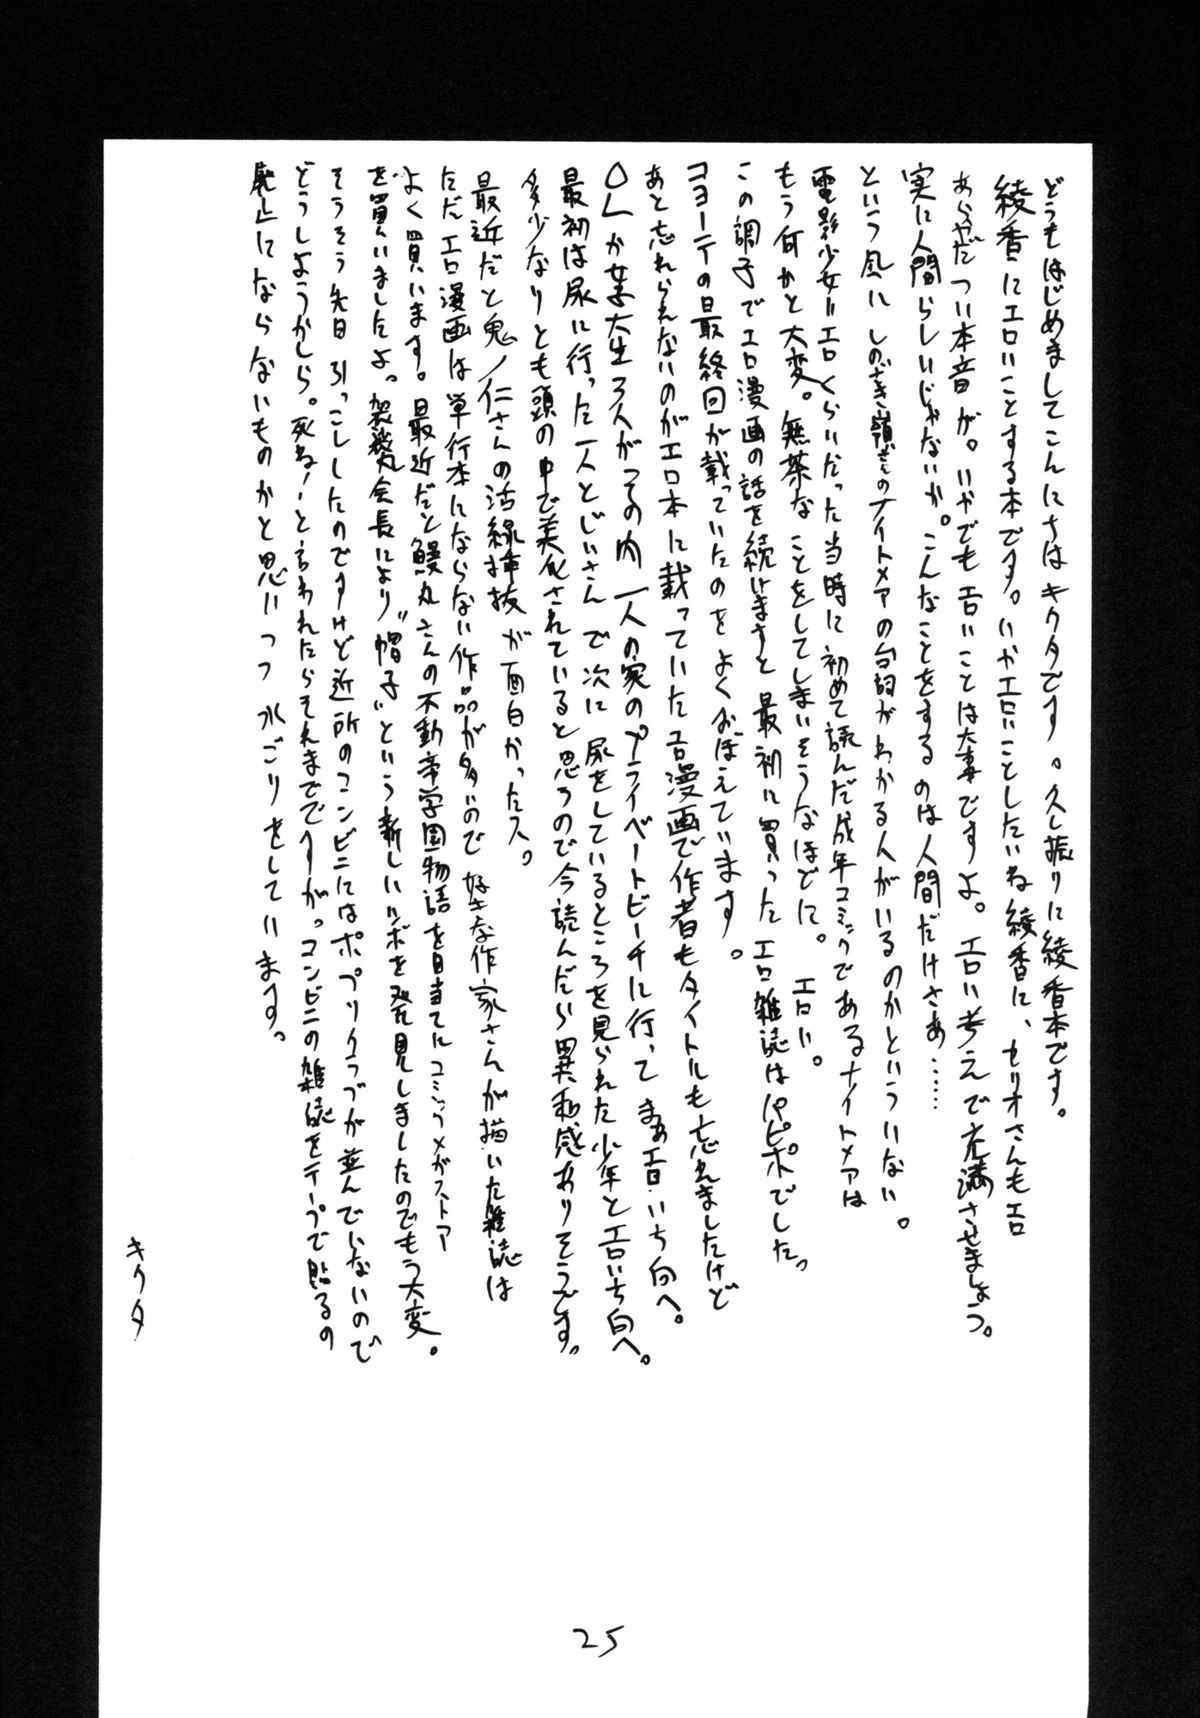 どうもはじめましてこんにちはキクタです。久し振りに綾香本です。
綾香にエロいことする本です。いやエロいことしたいね綾香に、セリオさんもエロ
あらやだつい本音が。いやでもエロいことは大事ですよ。エロい考えで充満させましょう。
実に人間らしいじゃないか。こんなことをするのは人間だけさあ……
という風にしのざき嶺さんのナイトメアの台詞がわかる人がいるのかというとない。
電影少女=エロくらいだった当時に初めて読んだ成年コミックであるナイトメアは
もう何かと大変。無茶なことをしてしまいそうなほどに。エロい。
この調子でエロ漫画の話を続けますと最初に買ったエロ雑誌はパピポでした。
コヨーテの最終回が載っていたのをよくおぼえています。
あと忘れられないのがエロ本に載っていたエロ漫画で作者もタイトルも忘れましたけど
OLか女子大生3人がその内一人の家のプライベートビーチに行ってまあエロいち向へ。
最初は尿に行った一人とじいさんで次に尿をしているところを見られた少年とエロいち向へ。
多少なりとも頭の中で美化されていると思うので今読んだら異和感ありそうです。
最近だと鬼ノ仁さんの活線挿抜が面白かったス。
ただエロ漫画は単行本にならない作品が多いので好きな作家さんが描いた雑誌は
よく買います。最近だと鰻丸さんの不動帝学園物語を目当てにコミックメガストア
を買いましたよ。袈裟丸会長により"帽子"という新しいツボを発見しましたのでもう大変。
そうそう先日引っこししたのですけど近所のコンビニにはポプリクラブが並んでいないので
どうしようかしら。死ね!と言われたらそれまでですがっコンビニの雑誌をテープで貼るの
廃止にならないものかと思いつつ水ごりをしています。
キクタ
25